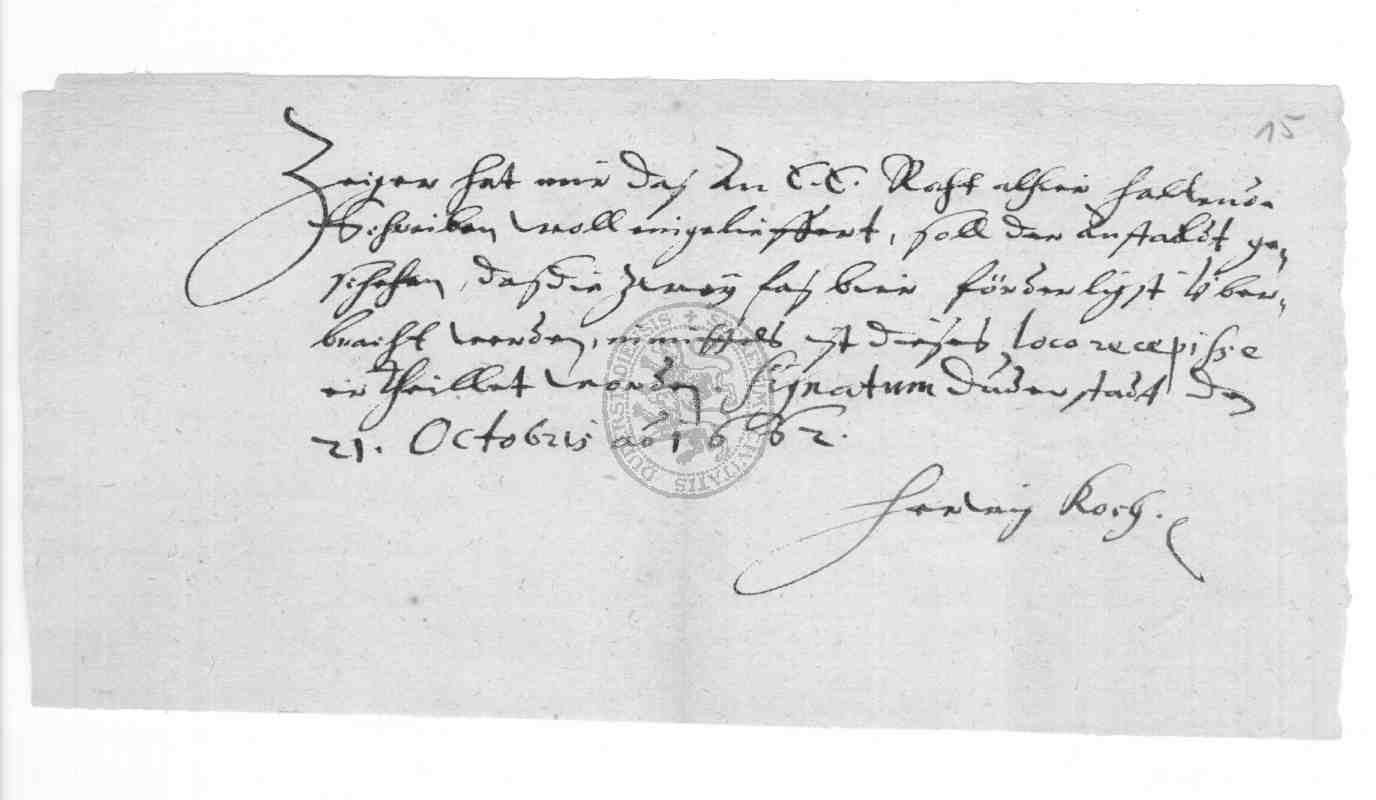 15
Zeiger hat mir daß An E.E. Raht alhier haltende
Schreiben woll eingelieffert, soll der Anstaldt ge-
schehen, daß die zwey faß bier förderligst über-
bracht werden, inmittels ist dieses loco recepisse
ertheillet worden. Signatum Duderstadt den
21. Octobris ao 1662.
Koch.
SIGILLUM CIVITATIS DUDERSTADIENSIS